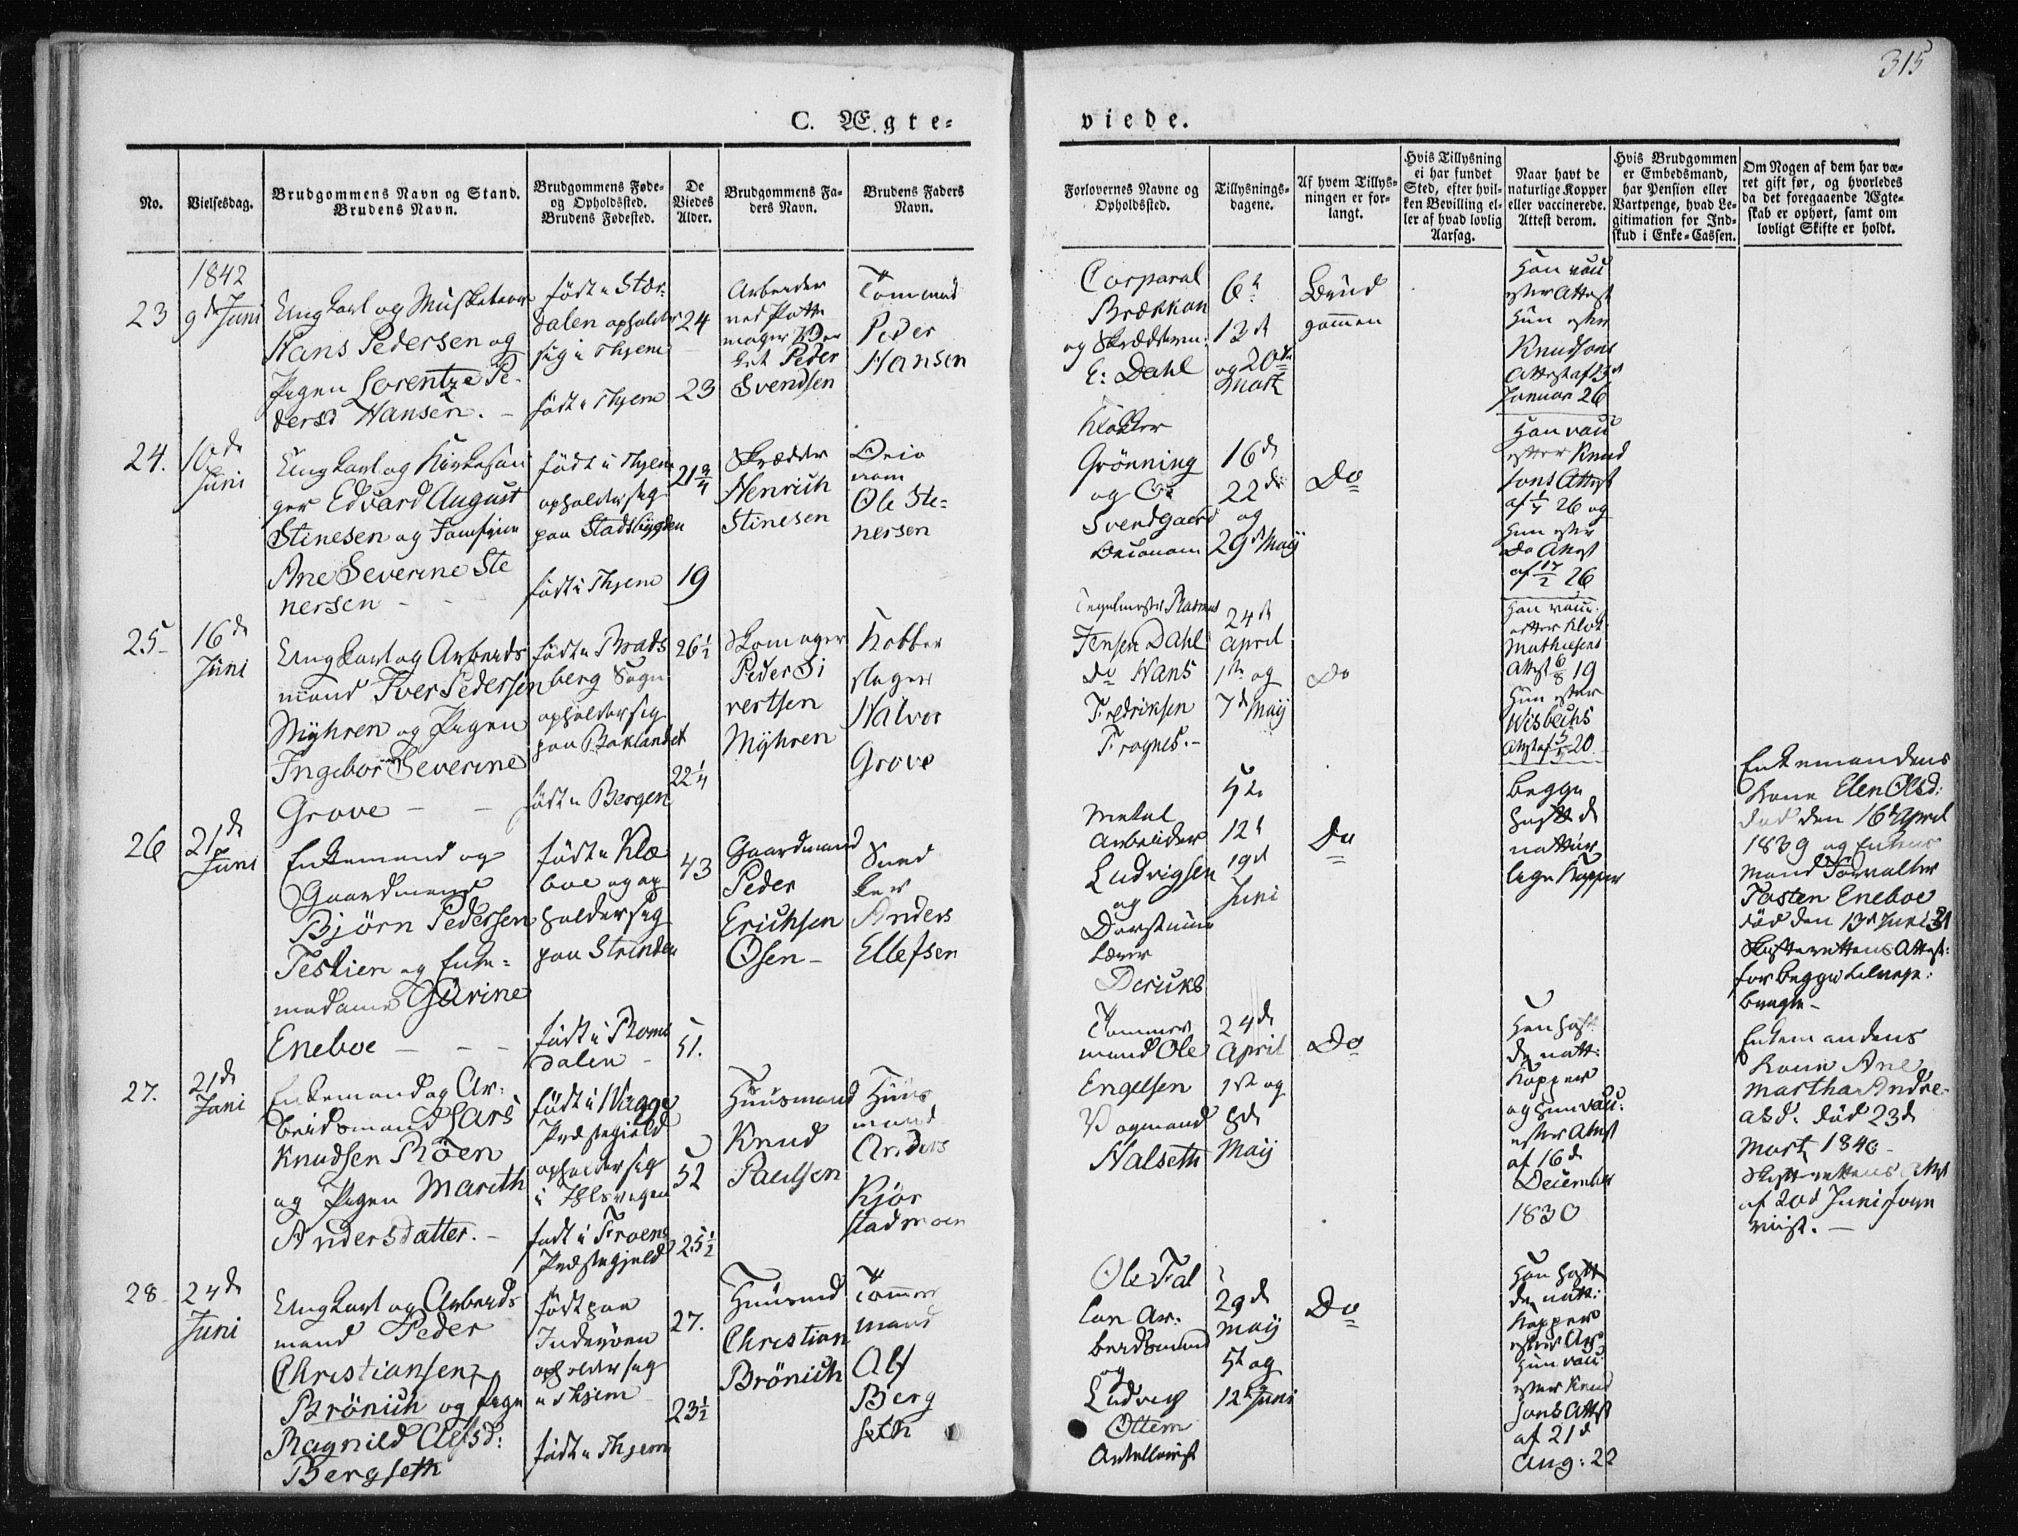 315
C. Ægte-
viede.
No.
Vielsesdag.
Brudgommens Navn og Stand.
Brudens Navn.
Brudgommens Føde-
og Opholdssted.
Brudens Fødested.
De
Viedes
Alder.
Brudgommens Fa-
ders Navn.
Brudens Faders
Navn.
Forlovernes Navne og
Opholdssted.
Tillysnings-
dagene.
Af hvem Tillys-
ningen er for-
langt.
Hvis Tillysning
ei har fundet
Sted, efter hvil-
ken Bevilling el-
ler af hvad lovlig
Aarsag.
Naar havt de
naturlige Kopper
eller vaccinerede.
Attest derom.
Hvis Brudgommen
er Embedsmand,
har Pension eller
Vartpenge, hvad Le-
gitimation for Ind-
skud i Enke-Cassen.
Om Nogen af dem har væ-
ret gift før, og hvorledes
da det foregaaende Ægte-
skab er ophørt, samt om
lovligt Skifte er holdt.
1842
23
9d Juni
Ungkarl og Musketeer
Hans Pedersen og
Pigen Lorentze Pe-
dersd Hansen. -
født i Stør-
dalen opholder
sig i Thjem
født i Thjem
24
23
Arbeider
ved Potte
mager
Peder
Svendsen
Tømmerd
Peder
Hansen
Corporal
Brækkan
og Skrædderm:
E: Dahl
6te
13de
og 20de
Mart
Brud
gommen
Han vacc
efter Attest
Hun efter
Knudsons
Attest af
Januar 26
24.
10de
Juni
Ungkarl og Kirkesan
ger Edvard August
Stinesen og Jomfrue
Ane Severine Ste
nersen -
født i Thjem
opholder sig
paa Stadsbygden
født i Thjem
21 3/4
19
Skrædder
Henrich
Stinesen
Oeco
nom
Ole Ste-
nersen
Klokker
Grønning
og
Svendgaard
Oeconom
16de
22de
og
29de Maij
Do
Han vacc
efter Knud
sons Attest
af 26 og
Hun efter
Do Attest
af 17/2 26
25
16de
Juni
Ungkarl og Arbeids
mand Iver Pedersen
Myhren og Pigen
Ingebor Severine
Grove - -
født i Brads
berg Sogn
opholder sig
paa Baklandet
født i Bergen
26 1/2
22 1/4
Skomager
Peder Si
vertsen
Myhren
Kobber
slager
Halvor
Grove
Teglmester Rasmus
Jensen Dahl
do Hans
Fredriksen
Frognes.-
24de
April
1ste og
7de Maij
Do
Han vacc.
efter Klok
Mathiesens
Attest 6/8 19
Hun efter
Wisbechs
Attest af 20
26
21de
Juni
Enkemand og
Gaardmand
Bjørn Pedersen
Teslien og Enke-
madame Gurine
Eneboe - - -
født i Klæ
boe og op
holder sig
paa Strinden
født i Roms
dalen -
43
51.
Gaardmand
Peder
Erichsen
Osen-
Sned
ker
Anders
Ellefsen
Metal
Arbeider
Ludvigsen
og
Lærer
5te
12te
19de
Juni
Do
begge
havt de
natur
lige Kopper
Enkemandens
Kone Elen Olsd:
død den 16de April
1839 og Enkens
Mand Forvalter
Tosten Eneboe
død den 13de Juni 31
Skifterettens Attest:
for begge tilveie:
bragte-
27.
21de
Juni
Enkemand og Ar:
beidsmand Lars
Knudsen Røen
og Pigen Marith
Andersdatter. -
født i Waage
Præstegjeld
opholder sig
i Ihlsvigen
født i Froens
Præstegjeld
52
25 1/2
Huusmand
Knud
Paulsen
Huus
mand
Anders
Kjør
stadmoen
Tømmer
mand Ole
Engelsen
Vogmand
Halseth
24de
April
1ste og
8de
Maij
Do
Han hav
de natt:
Kopper
og Hun vacc:
efter Attest
af 16de
December
1830
Enkemandens
Kone Ane
Martha Andre-
asd. død 23de
Mart 1840-
Skifterettens Attest
af 20de Juni fore
viist. -
28
24de
Juni
Ungkarl og Arbeids
mand Peder
Christiansen
Brönich og Pigen
Ragnild Olefsd:
Bergseth
født paa
Inderøen
opholder sig
i Thjem
født i Thjem
27.
23 1/2
Huusmd
Christian
Brönich
Tømmer
mand
Olef
Berg
seth
Ole Fal
Ar:
beidsmand
og
Ludvig
Ottem
29de
Maij
5te og
12te Juni
Do
Han havt
de natt:
Kopper
Hun vacc
efter Knud
sons Attest
af 21de
Aug: 22